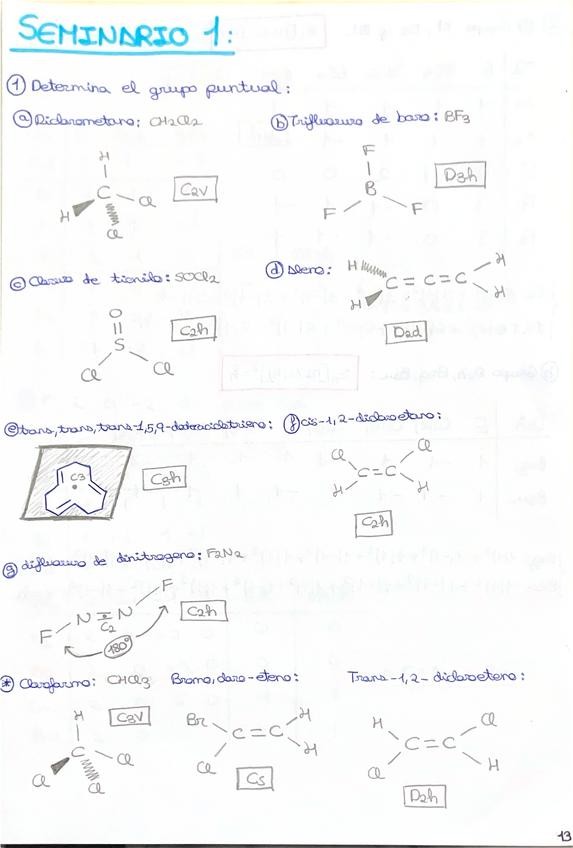 SEMINARIO 1:
① Determina el grupo puntual:
ⓐ Diclorometano: CH2Cl2
H
C
H
Cl
Cl
C2v
ⓑ Trifluoruro de boro: BF3
F
B
F
F
D3h
ⓒ Cloruro de tionilo: SOCl2
O
S
Cl
Cl
C2h
ⓓ Aleno:
H
H
C = C = C
H
H
D2d
ⓔ trans, trans, trans-1,5,9-dodecaciclotrieno:
C3
C3h
ⓕ cis-1,2-dicloroetano:
Cl
Cl
C = C
H
H
C2h
ⓖ difluoruro de dinitrogeno: F2N2
F
N = N
C2
F
180º
C2h
* Cloroformo: CHCl3
H
C
Cl
Cl
Cl
C3v
Bromo, cloro-eteno:
Br
H
C = C
Cl
H
Cs
Trans-1,2-dicloroeteno:
H
Cl
C = C
Cl
H
D2h
13